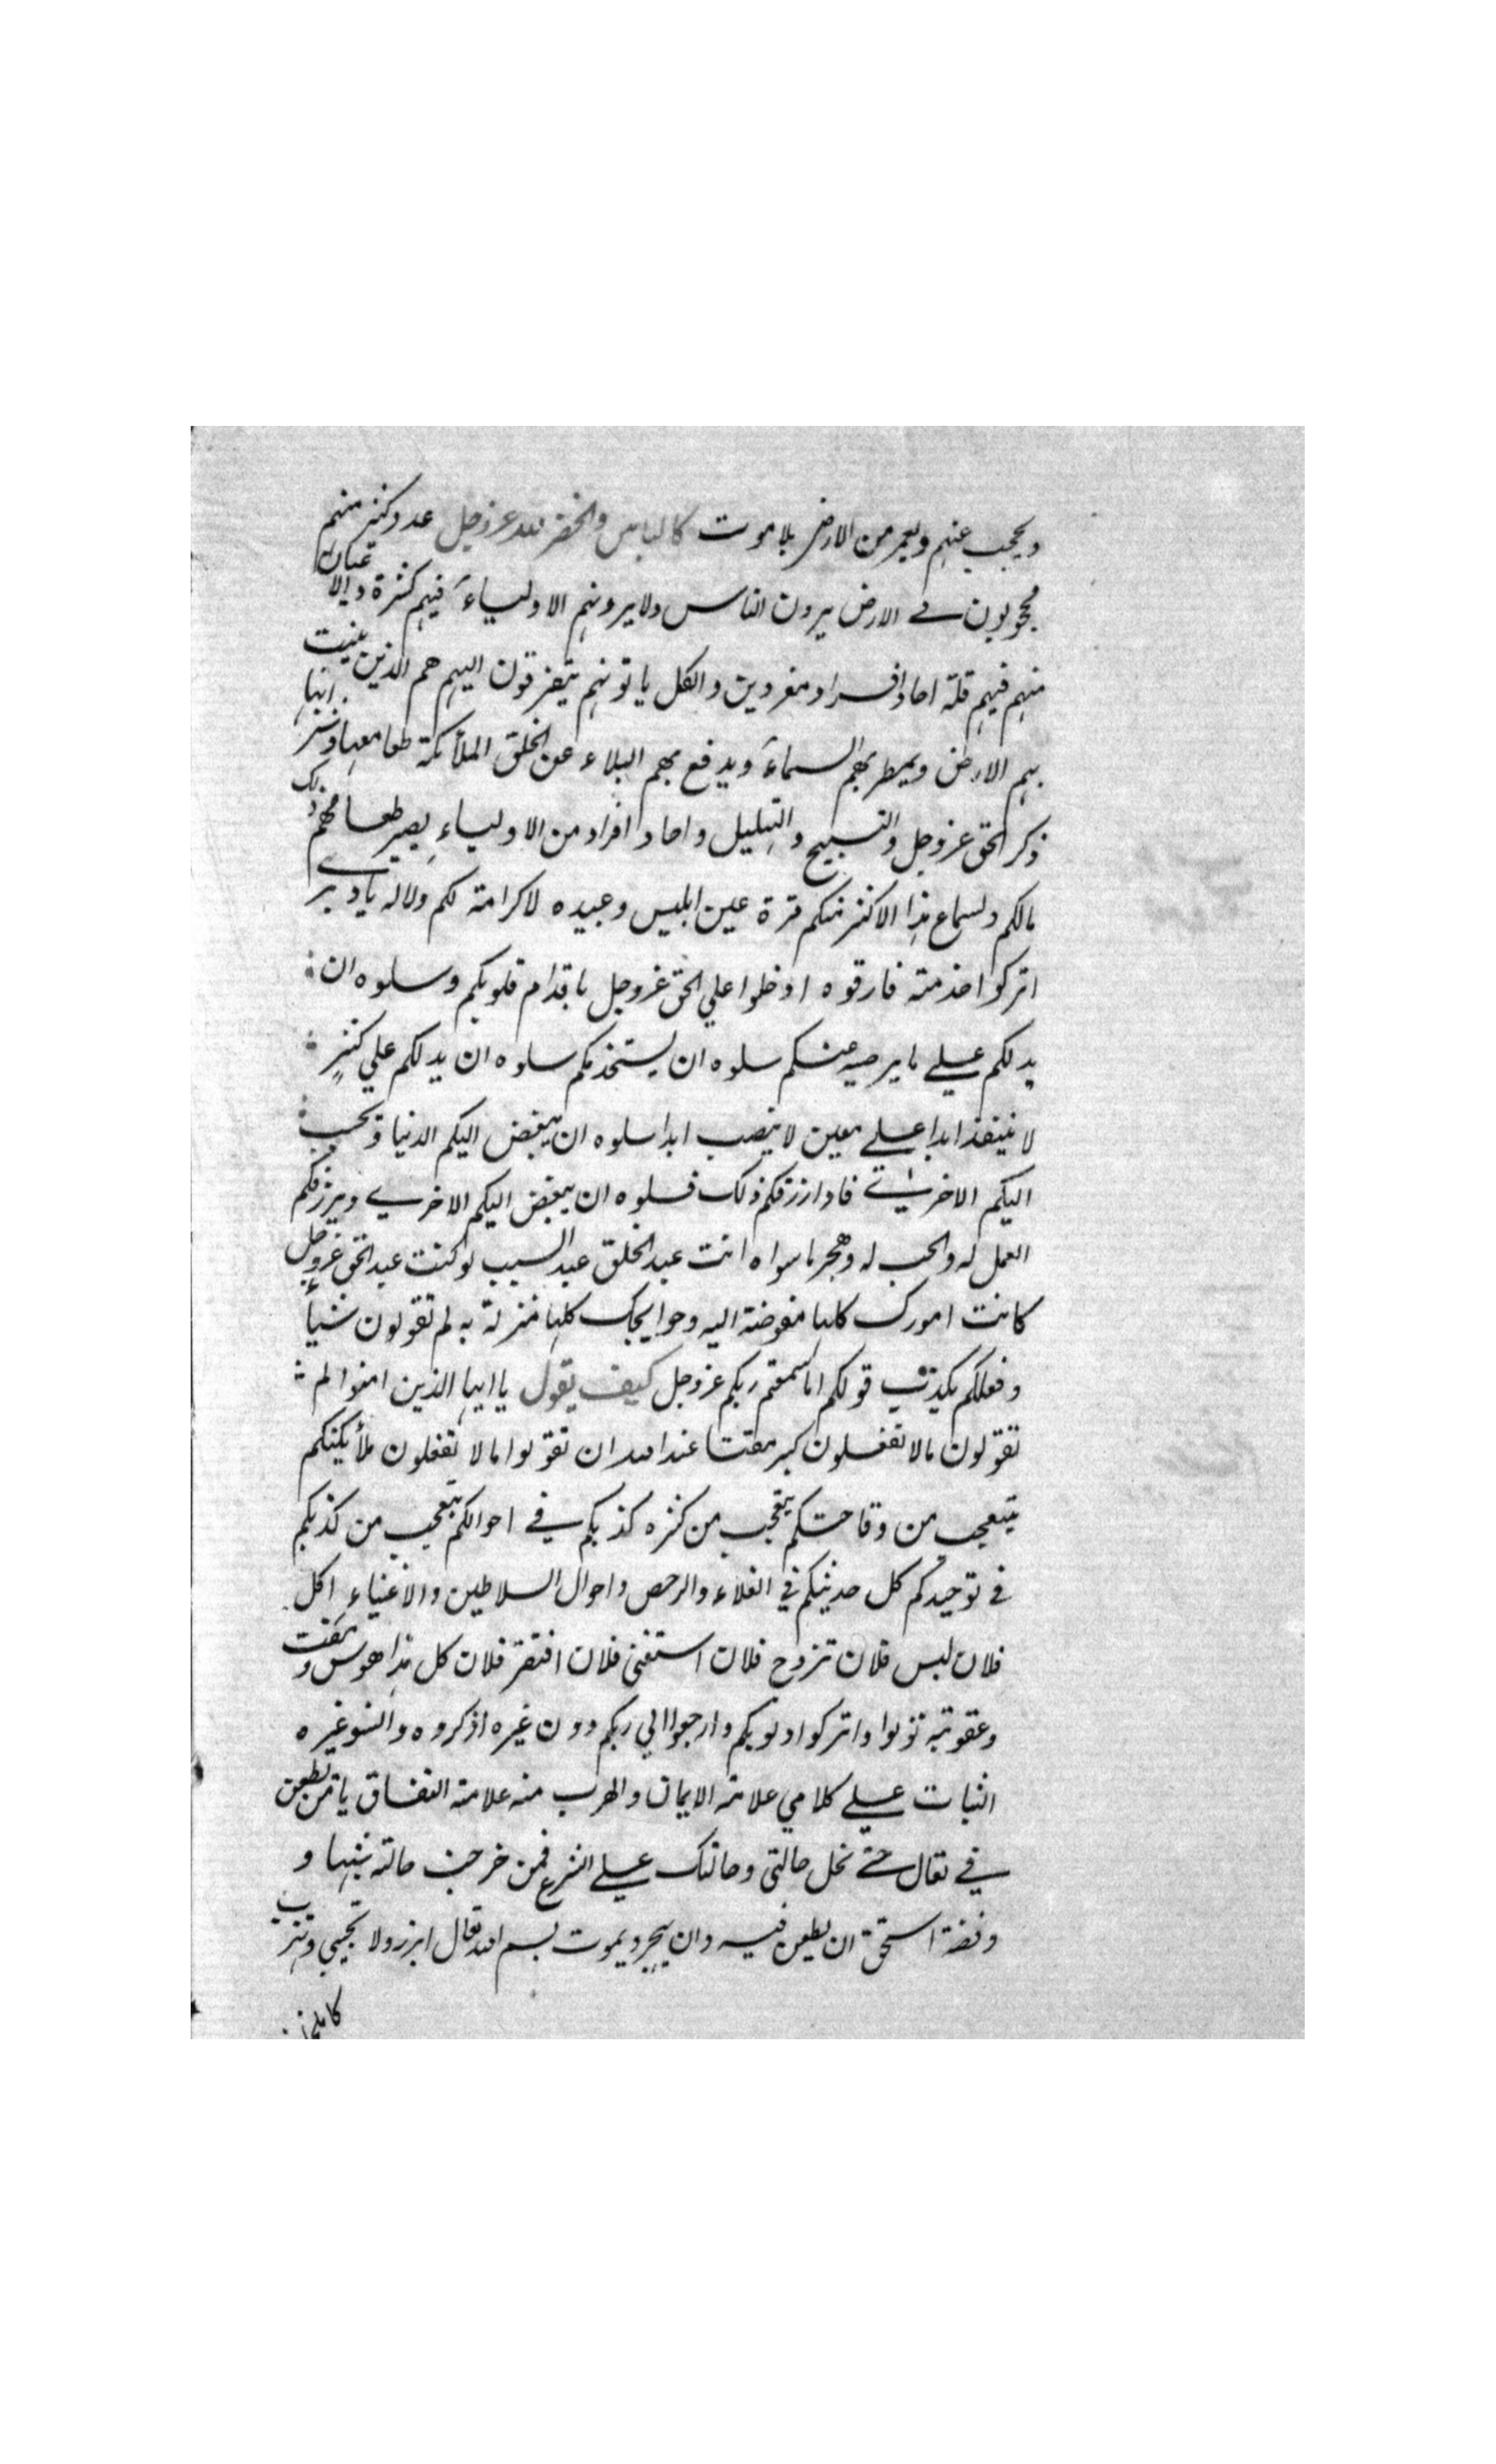 ويحجب عنهم ويعمر من الارض بلا موت كالياس والخضر لله عز وجل عدد كثير منهم
محجوبون في الارض يرون الناس ولا يرونهم الاولياء فيهم كثرة والاعيان
منهم فيهم قلة احاد افراد مفردين والكل ياتونهم يتقربون اليهم هم الذين ينبت
بهم الارض ويمطر بهم السماء ويدفع بهم البلاء عن الخلق الملأئكة طعامهم وشرابهم
ذكر الحق عز وجل والتسبيح والتهليل واحاد افراد من الاولياء يصير طعامهم ذلك
مالكم ولسماع هذا الاكثر منكم قرة عين ابليس وعبيده لا كرامة لكم ولا له يا
اتركوا خدمته فارقوه ادخلوا علي الحق عز وجل باقدام قلوبكم وسلوه ان
يدلكم علي ما يرضيه عنكم سلوه ان يستخدمكم سلوه ان يدلكم علي كنز
لا ينفذ ابدا علي معين لا ينصب ابدا سلوه ان يبغض اليكم الدنيا ويحبب
اليكم الاخري فاذا رزقكم ذلك فسلوه ان يبغض اليكم الاخري ويرزقكم
العمل له والحب له وهجر ما سواه انت عبد الخلق عبد السبب لو كنت عبد الحق عز وجل
كانت امورك كلها مفوضة اليه وحوايجك كلها منزلة به لم تقولون شيأ
وفعلكم يكذب قولكم اما سمعتم ربكم عز وجل كيف يقول يا ايها الذين امنوا لم
تقولون مالا تفعلون كبر مقتا عند الله ان تقولوا مالا تفعلون ملأيكتكم
يتعجب من وقاحتكم يتعجب من كثره كذبكم في احوالكم يتعجب من كذبكم
في توحيدكم كل حديثكم في الغلاء والرخص واحوال السلاطين والاغنياء اكل
فلان لبس فلان تزوج فلان استغني فلان افتقر فلان كل هذا هوس ومقت
وعقوبة توبوا واتركوا ذنوبكم وارجعوا الي ربكم دون غيره اذكروه وانسوا غيره
الثبات علي كلامي علامة الايمان والهرب منه علامة النفاق يا من يطعن
في تعال حتي نحل حالتي وحالتك علي الشرع فمن خرجت حالته بنبهها و
وفضة استحق ان يطعن فيه وان يهجر ويموت بسم الله تعال ابرز ولا تختبي وتهرب